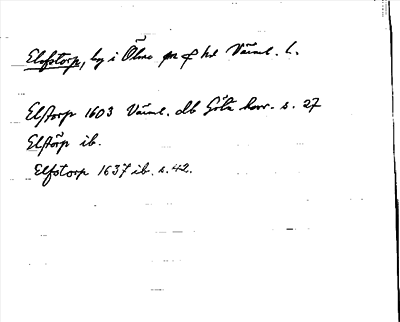 Elofstorp, by i Ölme sn o hd Värml. l.
Elstorp 1603 Värml. db Göta hovr. s. 27
Elstörp ib.
Elfstorp 1637 ib. s. 42.